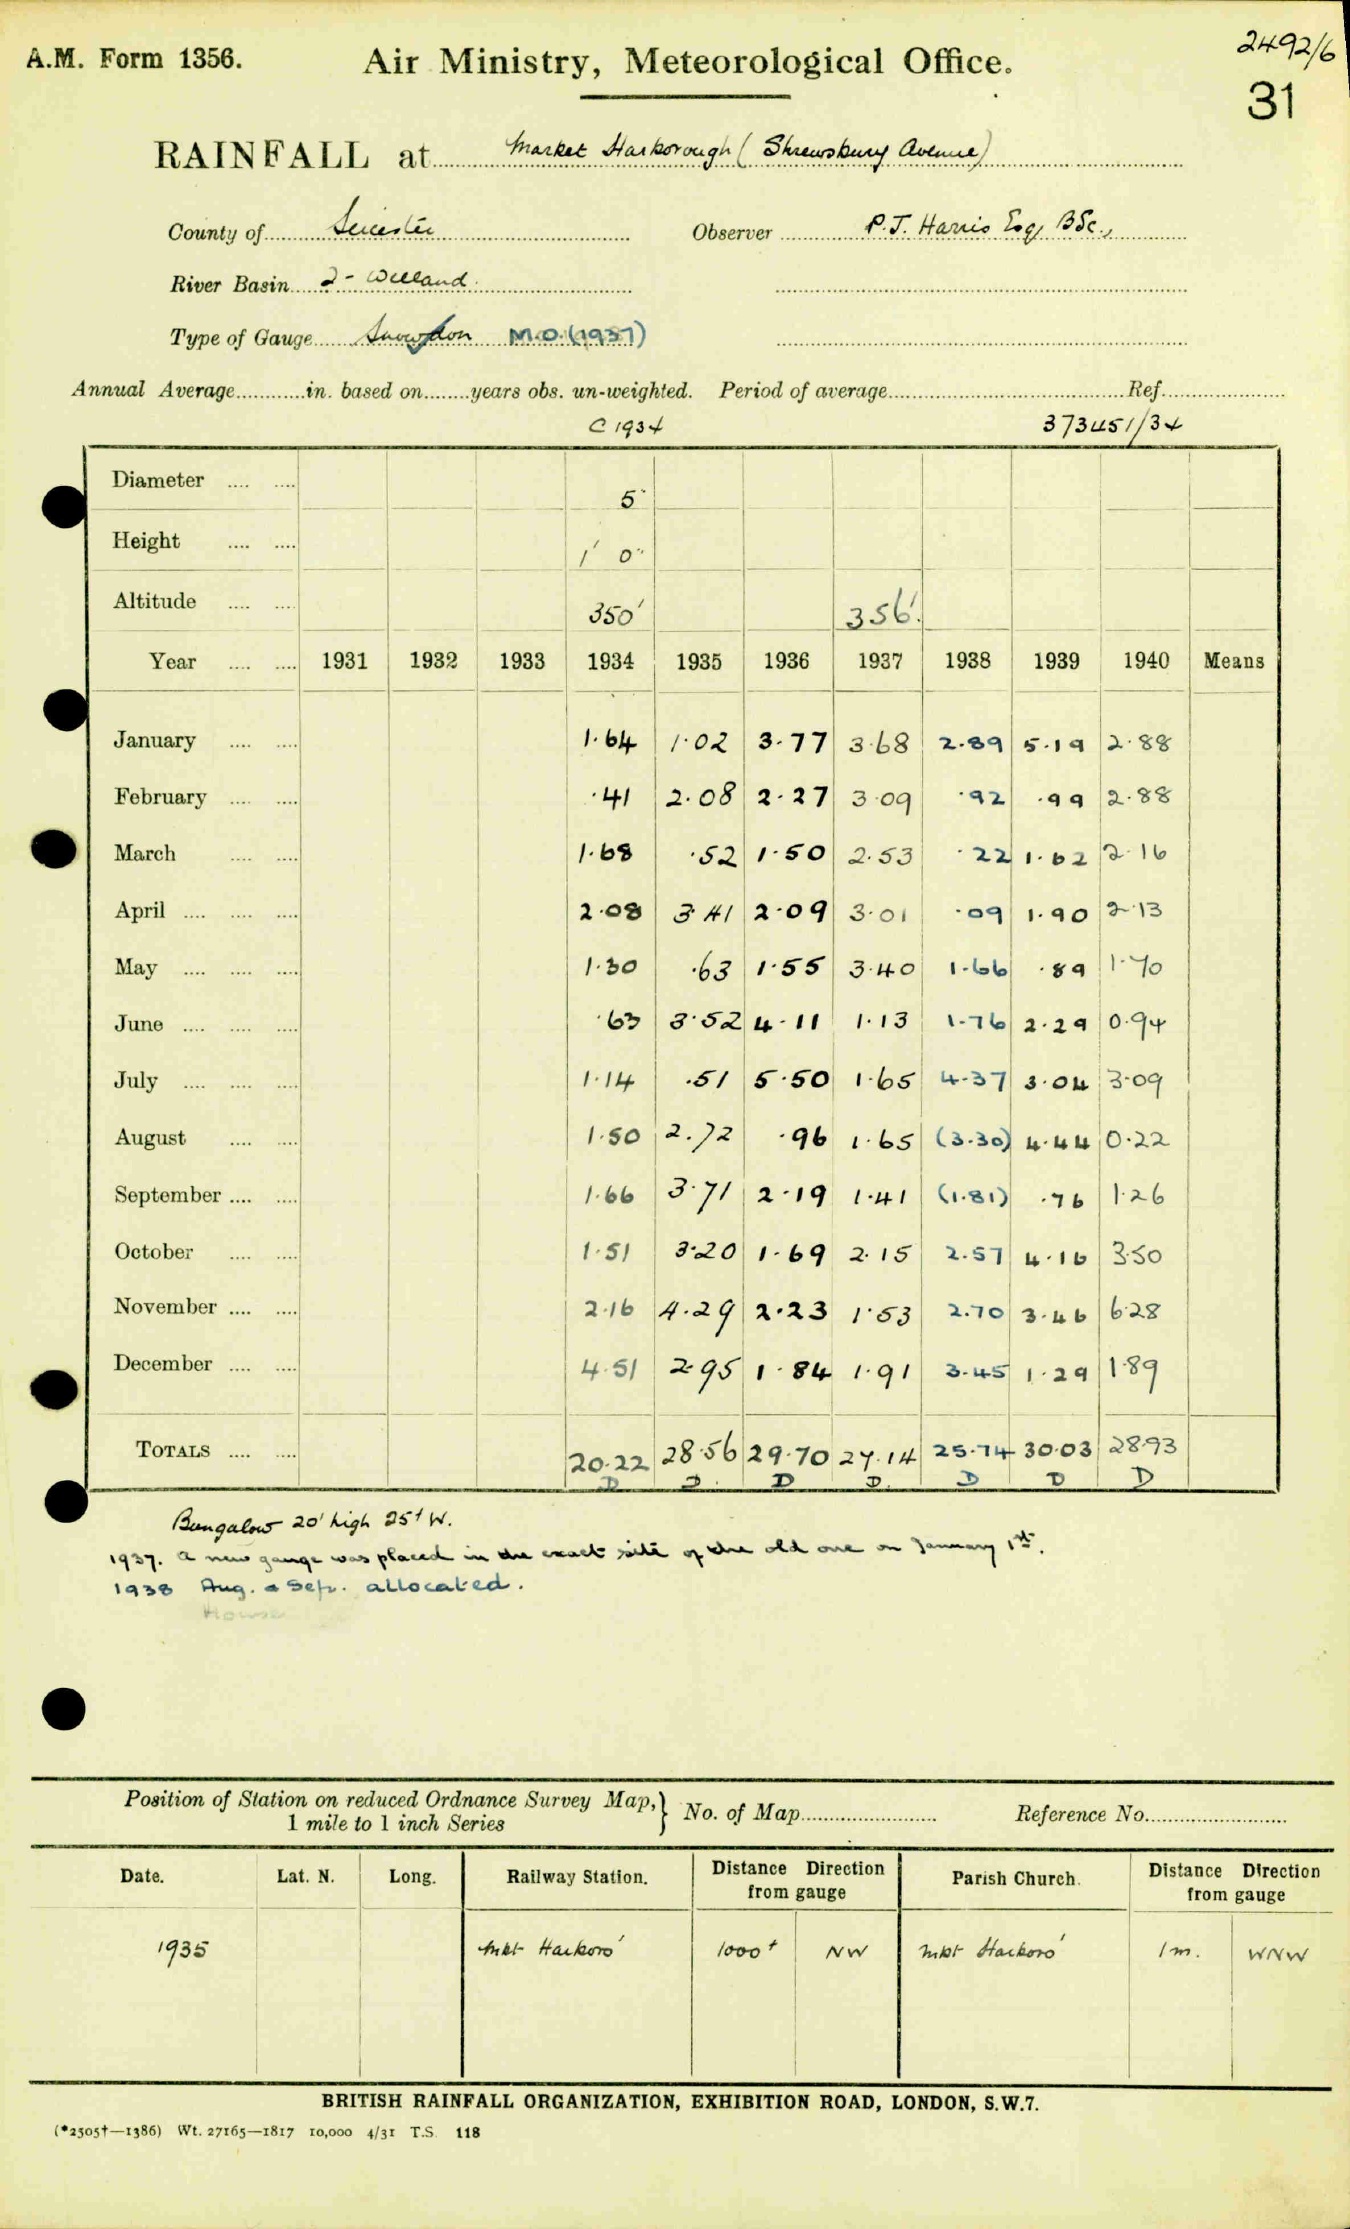 2492/6
A.M. Form 1356. Air Ministry, Meteorological Office.
31
RAINFALL at Market Harborough (Shrewsbury Avenue)
County of Leicester Observer P.J. Harris Esq, BSc.,
River Basin 2 - Welland.
Type of Gauge Snowdon M.O. (1937)
Annual Average in. based on years obs. un-weighted. Period of average Ref.
C 1934 373451/34
Diameter 5"
Height 1' 0"
Altitude 350' 356'.
Year 1931 1932 1933 1934 1935 1936 1937 1938 1939 1940 Means
January 1.64 1.02 3.77 3.68 2.89 5.19 2.88
February .41 2.08 2.27 3.09 .92 .99 2.88
March 1.68 .52 1.50 2.53 .22 1.62 2.16
April 2.08 3.41 2.09 3.01 .09 1.90 2.13
May 1.30 .63 1.55 3.40 1.66 .89 1.70
June .63 3.52 4.11 1.13 1.76 2.29 0.94
July 1.14 .51 5.50 1.65 4.37 3.04 3.09
August 1.50 2.72 .96 1.65 (3.30) 4.44 0.22
September 1.66 3.71 2.19 1.41 (1.81) .76 1.26
October 1.51 3.20 1.69 2.15 2.57 4.16 3.50
November 2.16 4.29 2.23 1.53 2.70 3.46 6.28
December 4.51 2.95 1.84 1.91 3.45 1.29 1.89
TOTALS 20.22 28.56 29.70 27.14 25.74 30.03 28.93
D D. D D. D D D
Bungalow 20' high 25+ W.
1937. A new gauge was placed in the exact site of the old one on January 1st.
1938 Aug. & Sep. allocated.
House
Position of Station on reduced Ordnance Survey Map,} No. of Map Reference No.
1 mile to 1 inch Series
Date. Lat. N. Long. Railway Station. Distance Direction from gauge Parish Church. Distance Direction from gauge
1935 Mkt Harboro' 1000+ NW Mkt Harboro' 1 m. WNW
BRITISH RAINFALL ORGANIZATION, EXHIBITION ROAD, LONDON, S.W.7.
(*2505†—1386) Wt. 27165—1817 10,000 4/31 T.S. 118